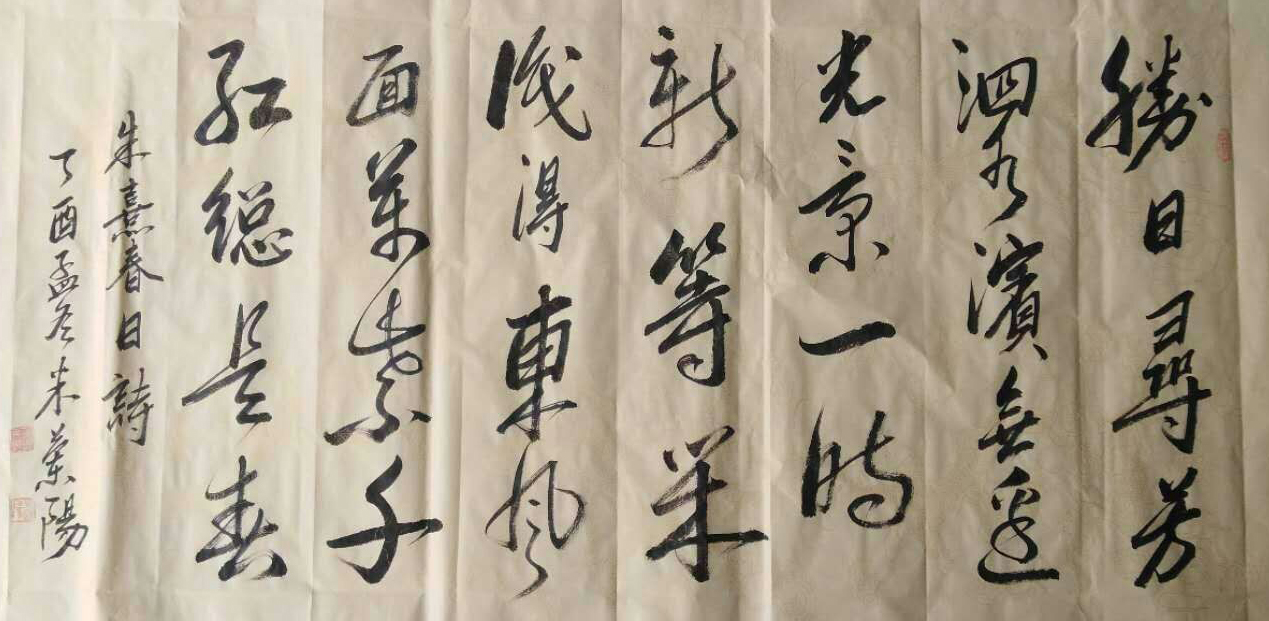 勝日尋芳
泗水濱無邊
光景一時
新等閑
識得東風
面萬紫千
紅總是春
朱熹春日詩
丁酉孟冬陽